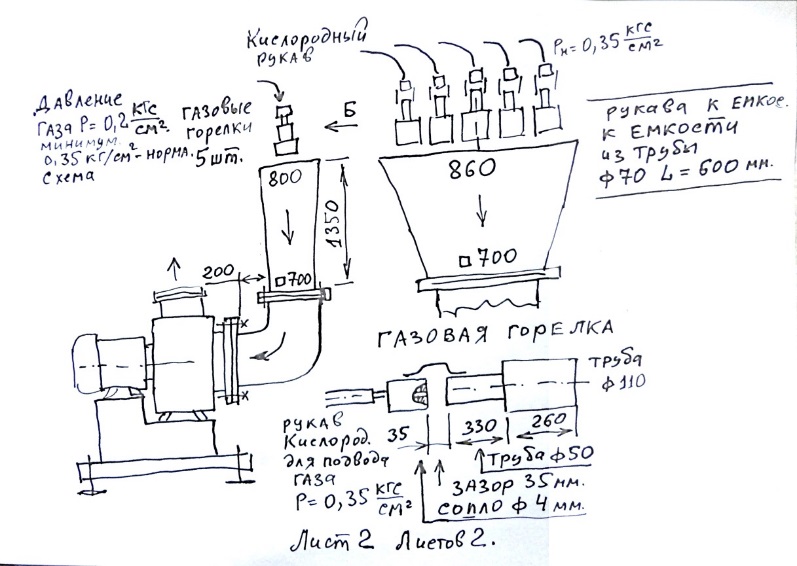 Кислородный
рукав
Рн = 0,35 кгс/см²
Давление
газа Р = 0,2 кгс/см²
минимум.
0,35 кг/см² - норма.
Схема
газовые
горелки
5 шт.
Б
рукава к емкос.
к емкости
из трубы
ф 70 L = 600 мм.
800
860
1350
□ 700
□ 700
200
х
х
ГАЗОВАЯ ГОРЕЛКА
труба
ф 110
рукав
Кислород.
для подвода
газа
Р = 0,35 кгс/см²
35
330
260
Труба ф 50
зазор 35 мм.
сопло ф 4 мм.
Лист 2 Листов 2.